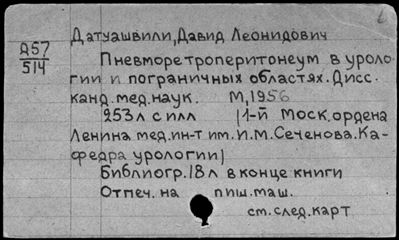 Датуашвили, Давид Леонидович
Д57
514
Пневморетроперитонеум в уроло-
гии и пограничных областях. Дисс.
канд. мед. наук. М, 1956
253 л с илл /1-й Моск. ордена
Ленина мед. ин-т им. И. М. Сеченова. Ка-
федра урологии/
Библиогр. 18 л в конце книги
Отпеч. на пиш. маш.
см. след. карт